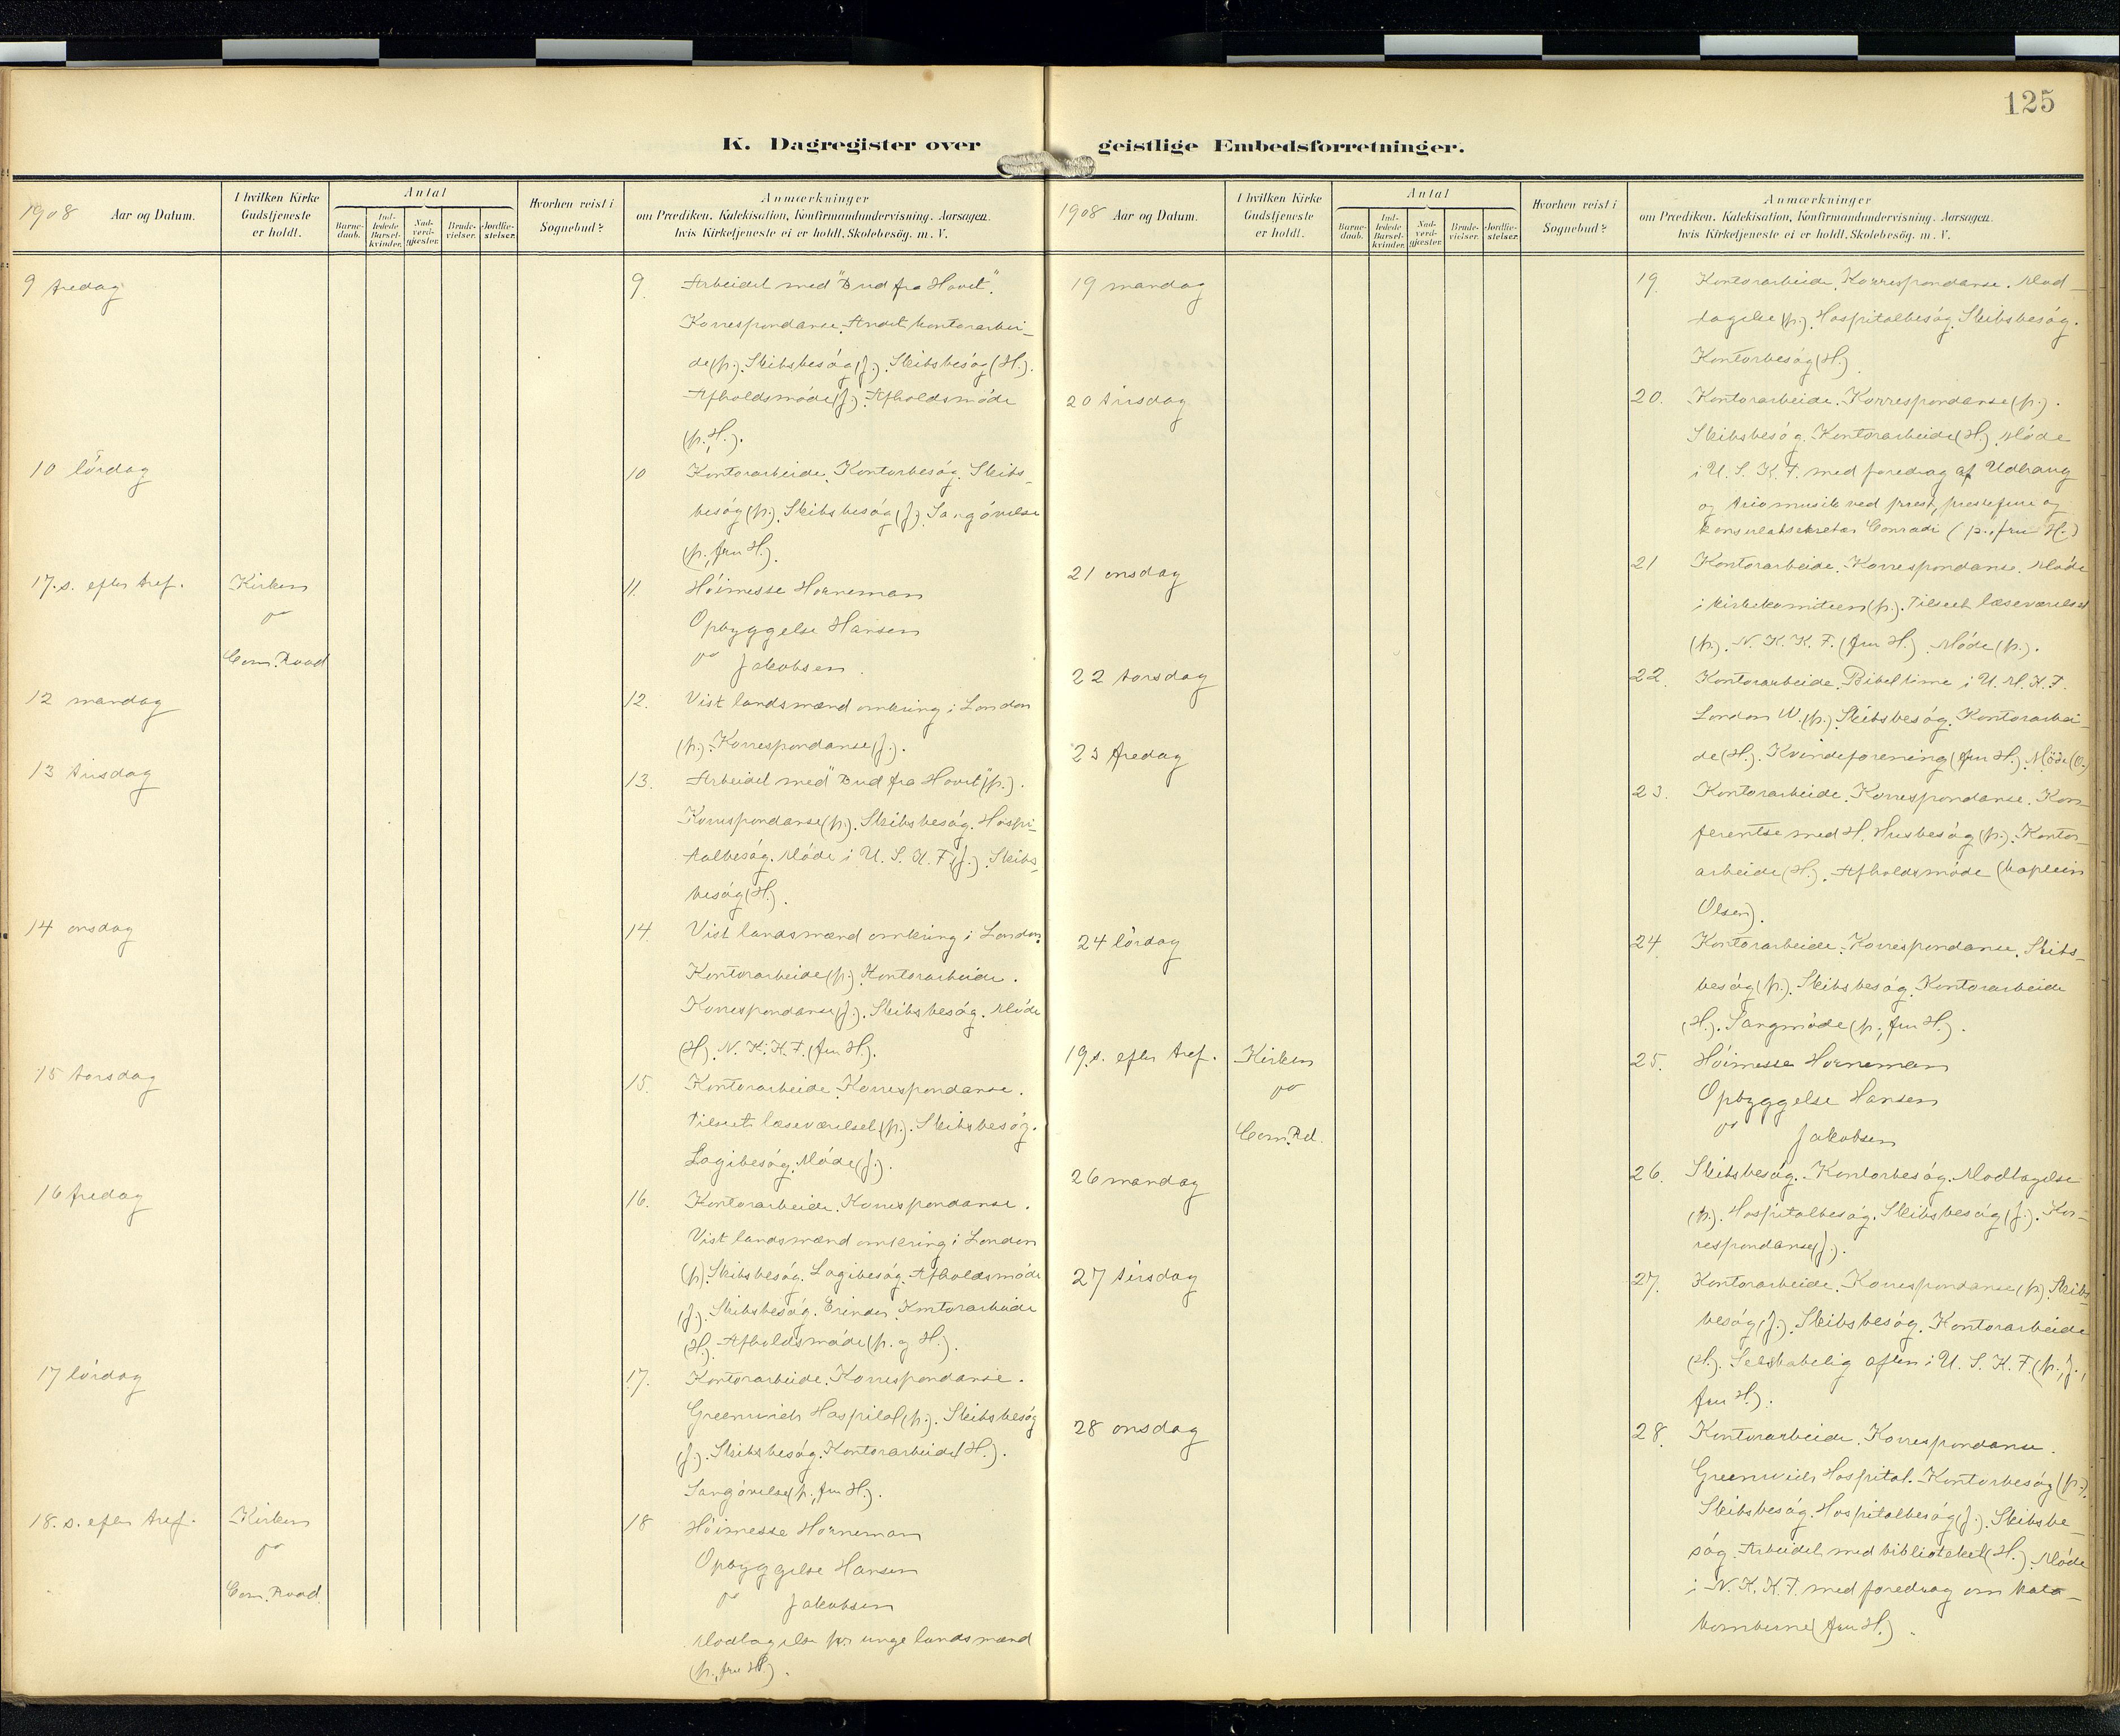 125
K. Dagregister over geistlige Embedsforretninger.
1908 Aar og Datum.
I hvilken Kirke Gudstjeneste er holdt.
Antal
Barne-daab.
Ind-ledede Barsel-kvinder.
Nad-verd-gjæster.
Brude-vielser.
Jordfæ-stelser.
Hvorhen reist i Sognebud?
Anmærkninger
om Prædiken, Katekisation, Konfirmandundervisning. Aarsagen,
hvis Kirketjeneste ei er holdt, Skolebesög. m. V.
9 fredag
9. Arbeidet med "Bud fra Havet".
Korrespondanse. Andet kontorarbei-
de (p.). Skibsbesög (J.). Skibsbesög (H.).
Afholdsmöde (J.). Afholdsmöde
(p., H.).
10 lördag
10 Kontorarbeide. Kontorbesög. Skibs-
besög (p.). Skibsbesög (J.). Sangövelse
(p., fru H.).
17. s. efter tref. Kirken
11. Höimesse Horneman
do Opbyggelse Hansen
Com. Road do Jakobsen.
12 mandag
12. Vist landsmænd omkring i London
(p.). Korrespondanse (J.).
13 tirsdag
13. Arbeidet med "Bud fra Havet" (p.).
Korrespondanse (p.). Skibsbesög. Hospi-
talbesög. Möde i U. S. K. F. (J.). Skibs-
besög (H.).
14 onsdag
14. Vist landsmænd omkring i London.
Kontorarbeide (p.). Kontorarbeide.
Korrespondanse (J.). Skibsbesög. Möde
(H.). N. K. K. F. (fru H.).
15 torsdag
15. Kontorarbeide. Korrespondanse.
Tilseet læseværelset (p.). Skibsbesög.
Logibesög. Möde (J.).
16 fredag
16. Kontorarbeide. Korrespondanse.
Vist landsmænd omkring i London
(p.). Skibsbesög. Logibesög. Afholdsmöde
(J.). Skibsbesög. Erinder. Kontorarbeide
(H.). Afholdsmöde (p. og H.).
17 lördag
17. Kontorarbeide. Korrespondanse.
Greenwich Hospital (p.). Skibsbesög
(J.). Skibsbesög. Kontorarbeide (H.).
Sangövelse (p., fru H.).
18. s. efter tref. Kirken
18 Höimesse Horneman
do Opbyggelse Hansen
Com. Road. do Jakobsen
Modtagelse for unge landsmænd
(p., fru H.).
1908 Aar og Datum.
I hvilken Kirke Gudstjeneste er holdt.
Antal
Barne-daab.
Ind-ledede Barsel-kvinder.
Nad-verd-gjæster.
Brude-vielser.
Jordfæ-stelser.
Hvorhen reist i Sognebud?
Anmærkninger
om Prædiken, Katekisation, Konfirmandundervisning. Aarsagen,
hvis Kirketjeneste ei er holdt, Skolebesög. m. V.
19 mandag
19. Kontorarbeide. Korrespondanse. Mod-
tagelse (p.). Hospitalbesög. Skibsbesög.
Kontorbesög (H.).
20 tirsdag
20. Kontorarbeide. Korrespondanse (p.).
Skibsbesög. Kontorarbeide (H.). Möde
i U. S. K. F. med foredrag af Udbang
og triomusik ved prest, prestefrue og
konsulatsekretær Conradi (p., fru H.)
21 onsdag
21 Kontorarbeide. Korrespondanse. Möde
i kirkekomiteen (p.). Tilseet læseværelset
(p.). N. K. K. F. (fru H.). Möde (p.).
22 torsdag
22. Kontorarbeide. Bibeltime i U. M. K. F.
London W. (p.). Skibsbesög. Kontorarbei-
de (H.). Kvindeforening (fru H.). Möde (O.)
23 fredag
23. Kontorarbeide. Korrespondanse. Kon-
ferentse med H. Husbesög (p.). Kontor-
arbeide (H.). Afholdsmöde (kaptein
Olsen).
24 lördag
24 Kontorarbeide. Korrespondanse. Skibs-
besög (p.). Skibsbesög. Kontorarbeide
(H.). Sangmöde (p., fru H.).
19. s. efter tref. Kirken
25. Höimesse Horneman
do Opbyggelse Hansen
Com. Rd. do Jakobsen
26 mandag
26. Skibsbesög. Kontorbesög. Modtagelse
(p.). Hospitalbesög. Skibsbesög (J.). Kor-
respondanse (J.).
27 tirsdag
27. Kontorarbeide. Korrespondanse (p.). Skibs-
besög (J.). Skibsbesög. Kontorarbeide
(H.). Selskabelig aften i U. S. K. F. (p., J.,
fru H.).
28 onsdag
28. Kontorarbeide. Korrespondanse.
Greenwich Hospital. Kontorbesög (p.).
Skibsbesög. Hospitalbesög (J.). Skibsbe-
sög. Arbeidet med biblioteket (H.). Möde
i N. K. K. F. med foredrag om kata-
komberne (fru H.).